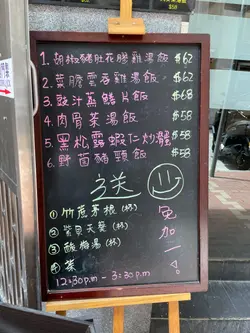 1. 胡椒豬肚花膠雞湯飯 $62
2. 菜膽雲吞雞湯飯 $62
3. 豉汁荔鱔片飯 $68
4. 肉骨茶湯飯 $58
5. 黑松露蝦仁炒 $58
6. 野菌豬頸飯 $58
送
① 竹蔗茅根(杯)
② 天葵(杯)
③ 酸梅湯(杯)
④ 茶
加一
12:30p.m - 3:30p.m